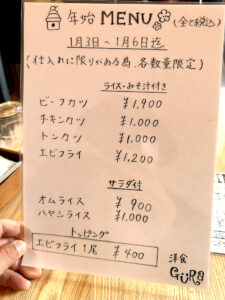 年始 MENU (全て税込)
1月3日〜1月6日迄
(仕入れに限りがある為、各数量限定)
ライス・みそ汁付き
ビーフカツ ¥1,900
チキンカツ ¥1,000
トンカツ ¥1,000
エビフライ ¥1,200
サラダ付
オムライス ¥900
ハヤシライス ¥1,000
トッピング
エビフライ1尾 ¥400
洋食
GURA